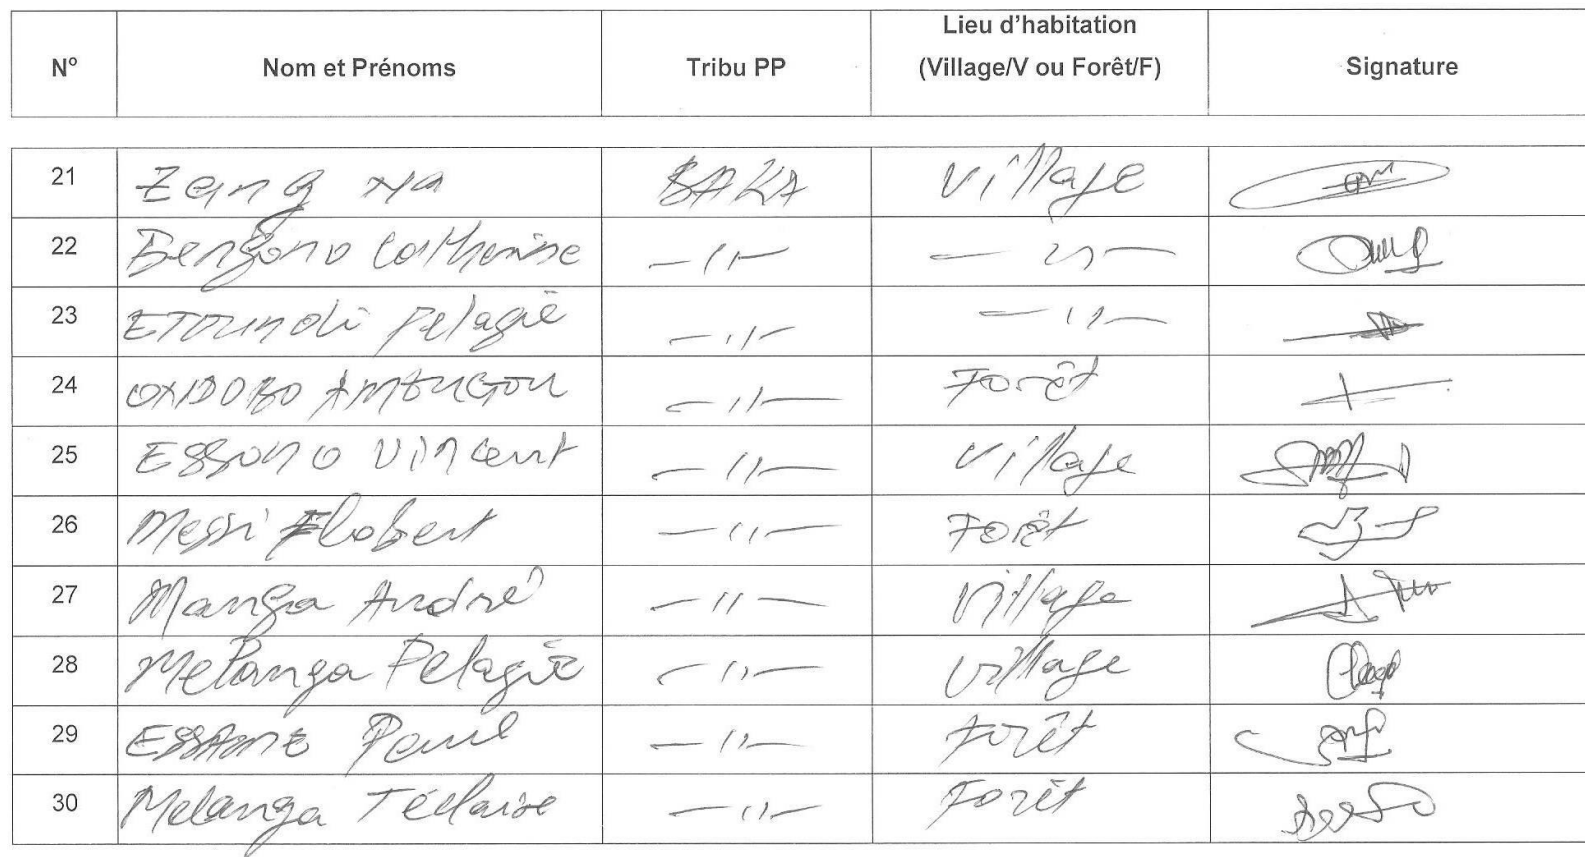 N° Nom et Prénoms Tribu PP Lieu d'habitation (Village/V ou Forêt/F) Signature
21 Zang Na BAKA Village
22 Bengono Catherine — // — — // —
23 ETOUNDI Pelagie — // — — // —
24 — // — Forêt
25 ESSONO Vincent — // — Village
26 Messi Flobert — // — Forêt
27 Manga André — // — Village
28 Melanga Pelagie — // — Village
29 ESSAME Paul — // — Forêt
30 Melanga — // — Forêt